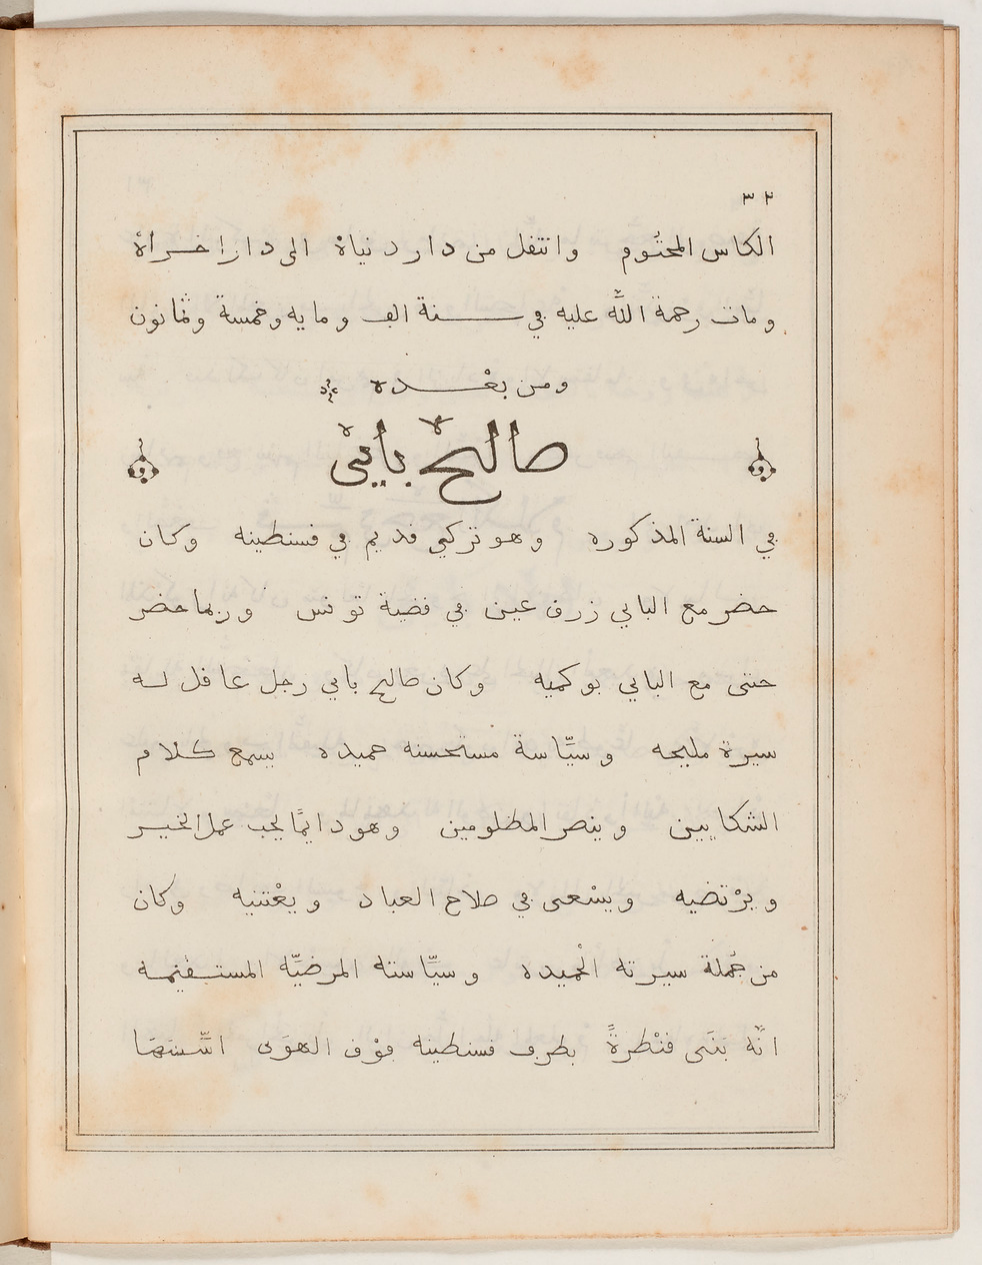 ٣٢
الكاس المحتُوم وانتقل من دار دنياهْ الى دار اخراهْ
ومات رحمة اللّٰه عليه في سنة الف ومايه وخمسة وثمانون
ومن بعْده
صالح باي
في السنة المذكوره وهو تركي قديم في قسنطينه وكان
حضر مع الباي زرق عين في قضية تونس وربما حضر
حتى مع الباي بوكميه وكان صالح باي رجل عاقل له
سيرة مليحه وسيّاسة مستحسنه حميده يسمع كلام
الشكايين وينصر المظلومين وهو دايمًا يحب عمل الخير
ويرْتضيه ويسْعى في صلاح العباد ويعْتنيه وكان
من جُملة سيرته الحْميده وسيّاسته المرضيّه المستقيمه
انّه بَنَى قنْطرةً بطرف قسنطينه فوْق الهوَى اسّسَهَا